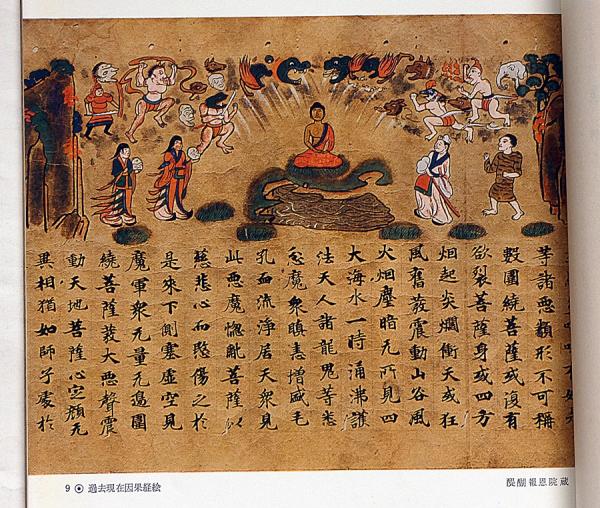 等諸惡類形不可稱
數圍繞菩薩或復有
欲裂菩薩身或四方
烟起炎爓衝天或狂
風奮發震動山谷風
火烟塵暗无所見四
大海水一時涌沸護
法天人諸龍鬼等悉
忿魔衆瞋恚增盛毛
孔血流淨居天衆見
此惡魔惚亂菩薩以
慈悲心而愍傷之於
是來下側塞虛空見
魔軍衆无量无邊圍
繞菩薩發大惡聲震
動天地菩薩心定顏无
異相猶如師子處於
9 ⦿ 過去現在因果経絵
醍醐報恩院蔵